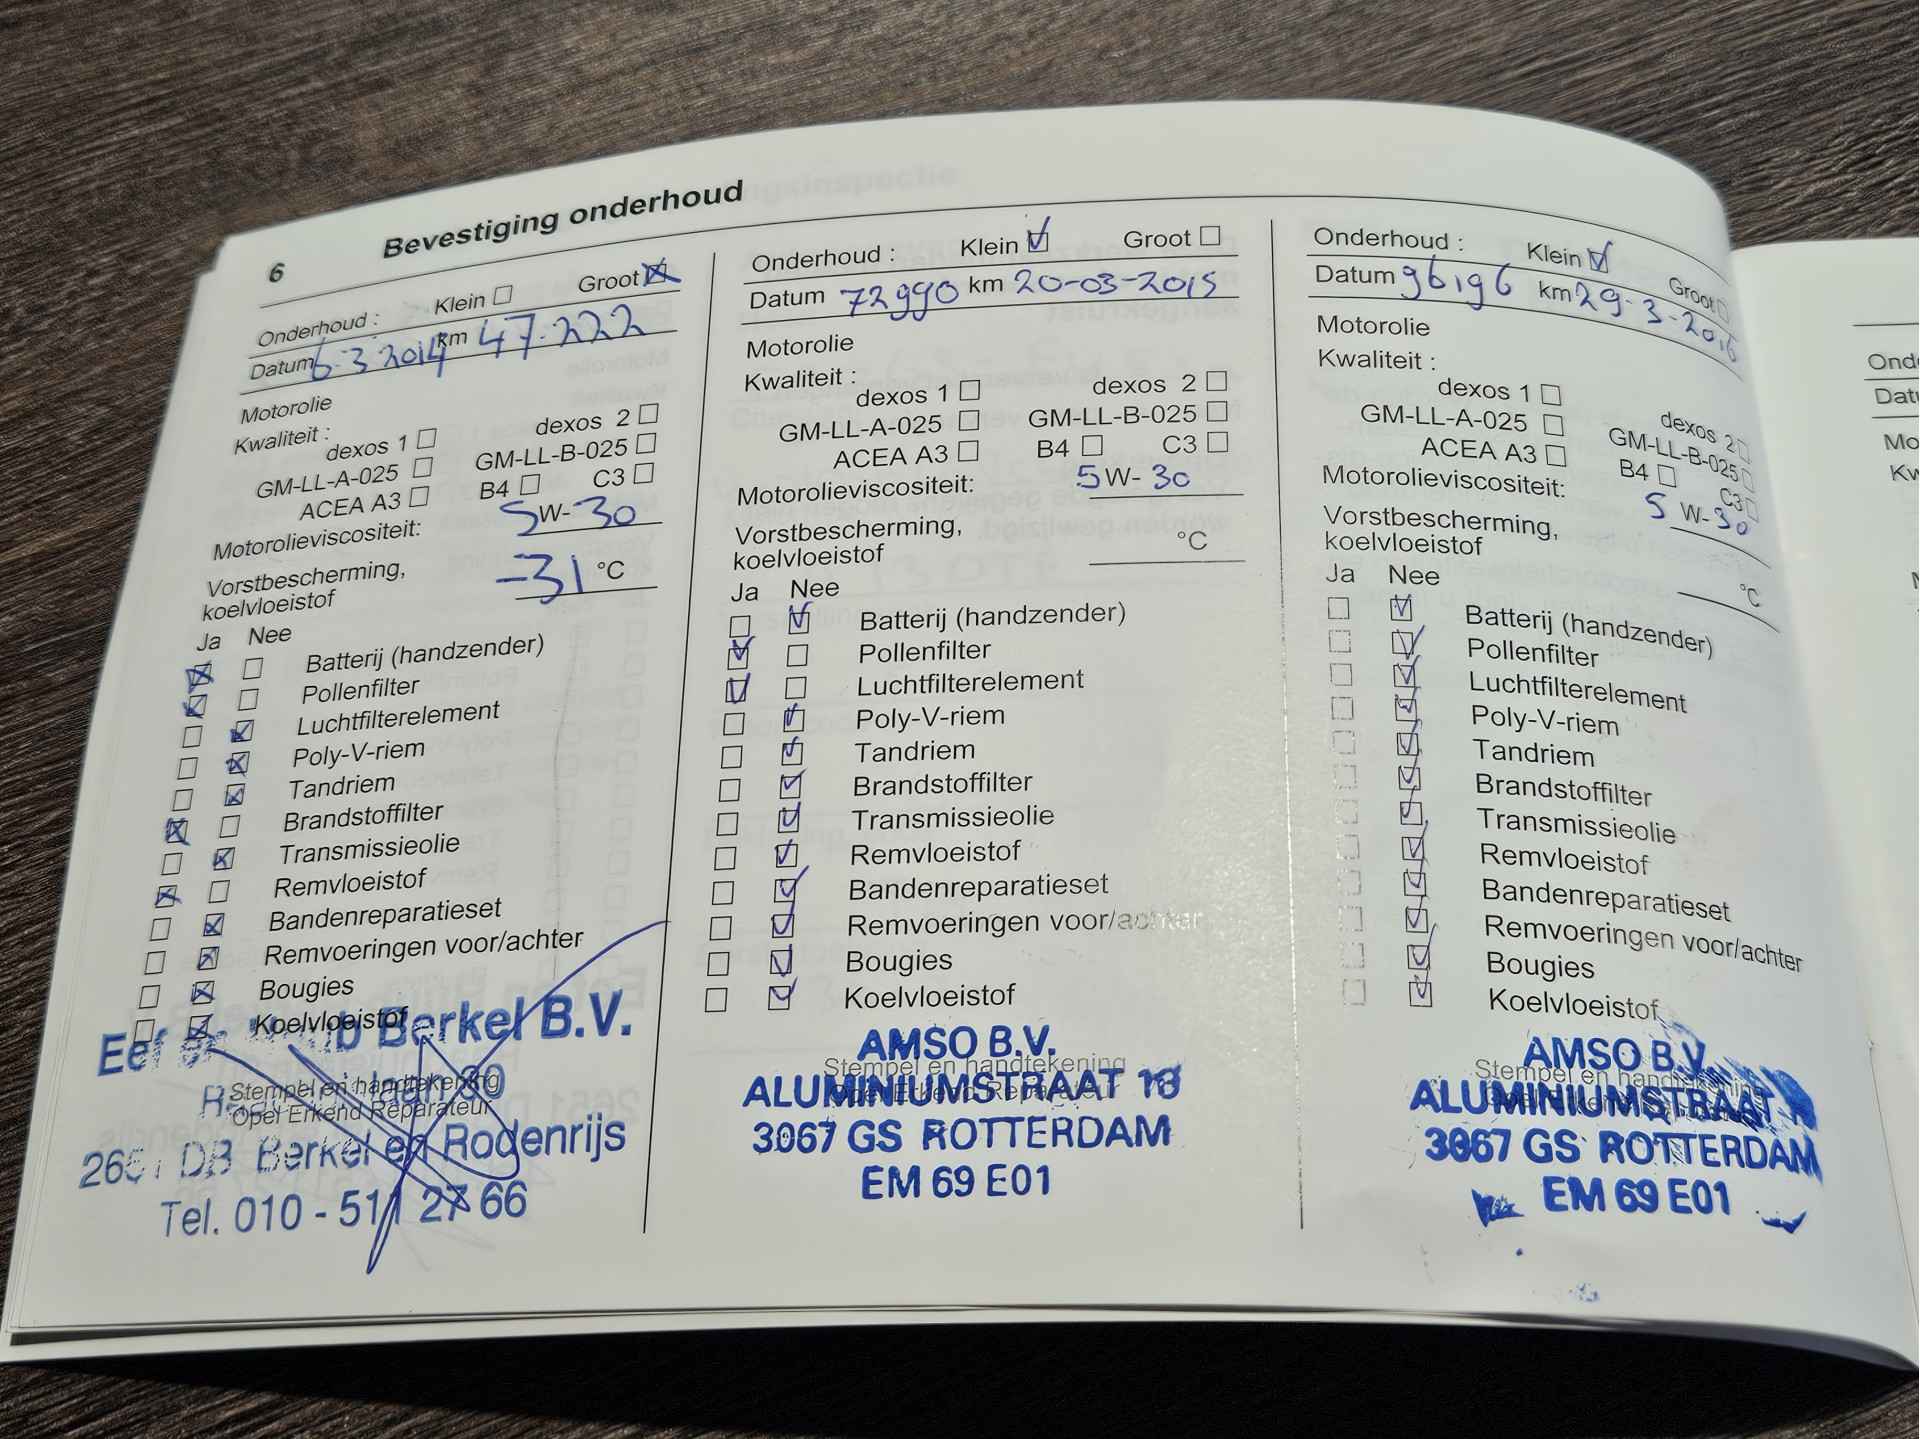 6
Bevestiging onderhoud
Onderhoud : Klein Groot
Datum 6-3-2014 km 47.222
Motorolie
Kwaliteit :
dexos 1 dexos 2
GM-LL-A-025 GM-LL-B-025
ACEA A3 B4 C3
Motorolieviscositeit: 5W-30
Vorstbescherming,
koelvloeistof -31 °C
Ja Nee
Batterij (handzender)
Pollenfilter
Luchtfilterelement
Poly-V-riem
Tandriem
Brandstoffilter
Transmissieolie
Remvloeistof
Bandenreparatieset
Remvoeringen voor/achter
Bougies
Koelvloeistof
Berkel B.V.
Stempel en handtekening
Opel Erkend Reparateur
laan 30
DB Berkel en Rodenrijs
Tel. 010 - 511 27 66
Onderhoud : Klein Groot
Datum 72990 km 20-03-2015
Motorolie
Kwaliteit :
dexos 1 dexos 2
GM-LL-A-025 GM-LL-B-025
ACEA A3 B4 C3
Motorolieviscositeit: 5W-30
Vorstbescherming,
koelvloeistof °C
Ja Nee
Batterij (handzender)
Pollenfilter
Luchtfilterelement
Poly-V-riem
Tandriem
Brandstoffilter
Transmissieolie
Remvloeistof
Bandenreparatieset
Remvoeringen voor/achter
Bougies
Koelvloeistof
AMSO B.V.
Stempel en handtekening
Opel Erkend Reparateur
ALUMINIUMSTRAAT
3067 GS ROTTERDAM
EM 69 E01
Onderhoud : Klein Groot
Datum 96196 km 29-3-2016
Motorolie
Kwaliteit :
dexos 1 dexos 2
GM-LL-A-025 GM-LL-B-025
ACEA A3 B4 C3
Motorolieviscositeit: 5W-30
Vorstbescherming,
koelvloeistof °C
Ja Nee
Batterij (handzender)
Pollenfilter
Luchtfilterelement
Poly-V-riem
Tandriem
Brandstoffilter
Transmissieolie
Remvloeistof
Bandenreparatieset
Remvoeringen voor/achter
Bougies
Koelvloeistof
AMSO B.V.
Stempel en handtekening
ALUMINIUMSTRAAT
3067 GS ROTTERDAM
EM 69 E01